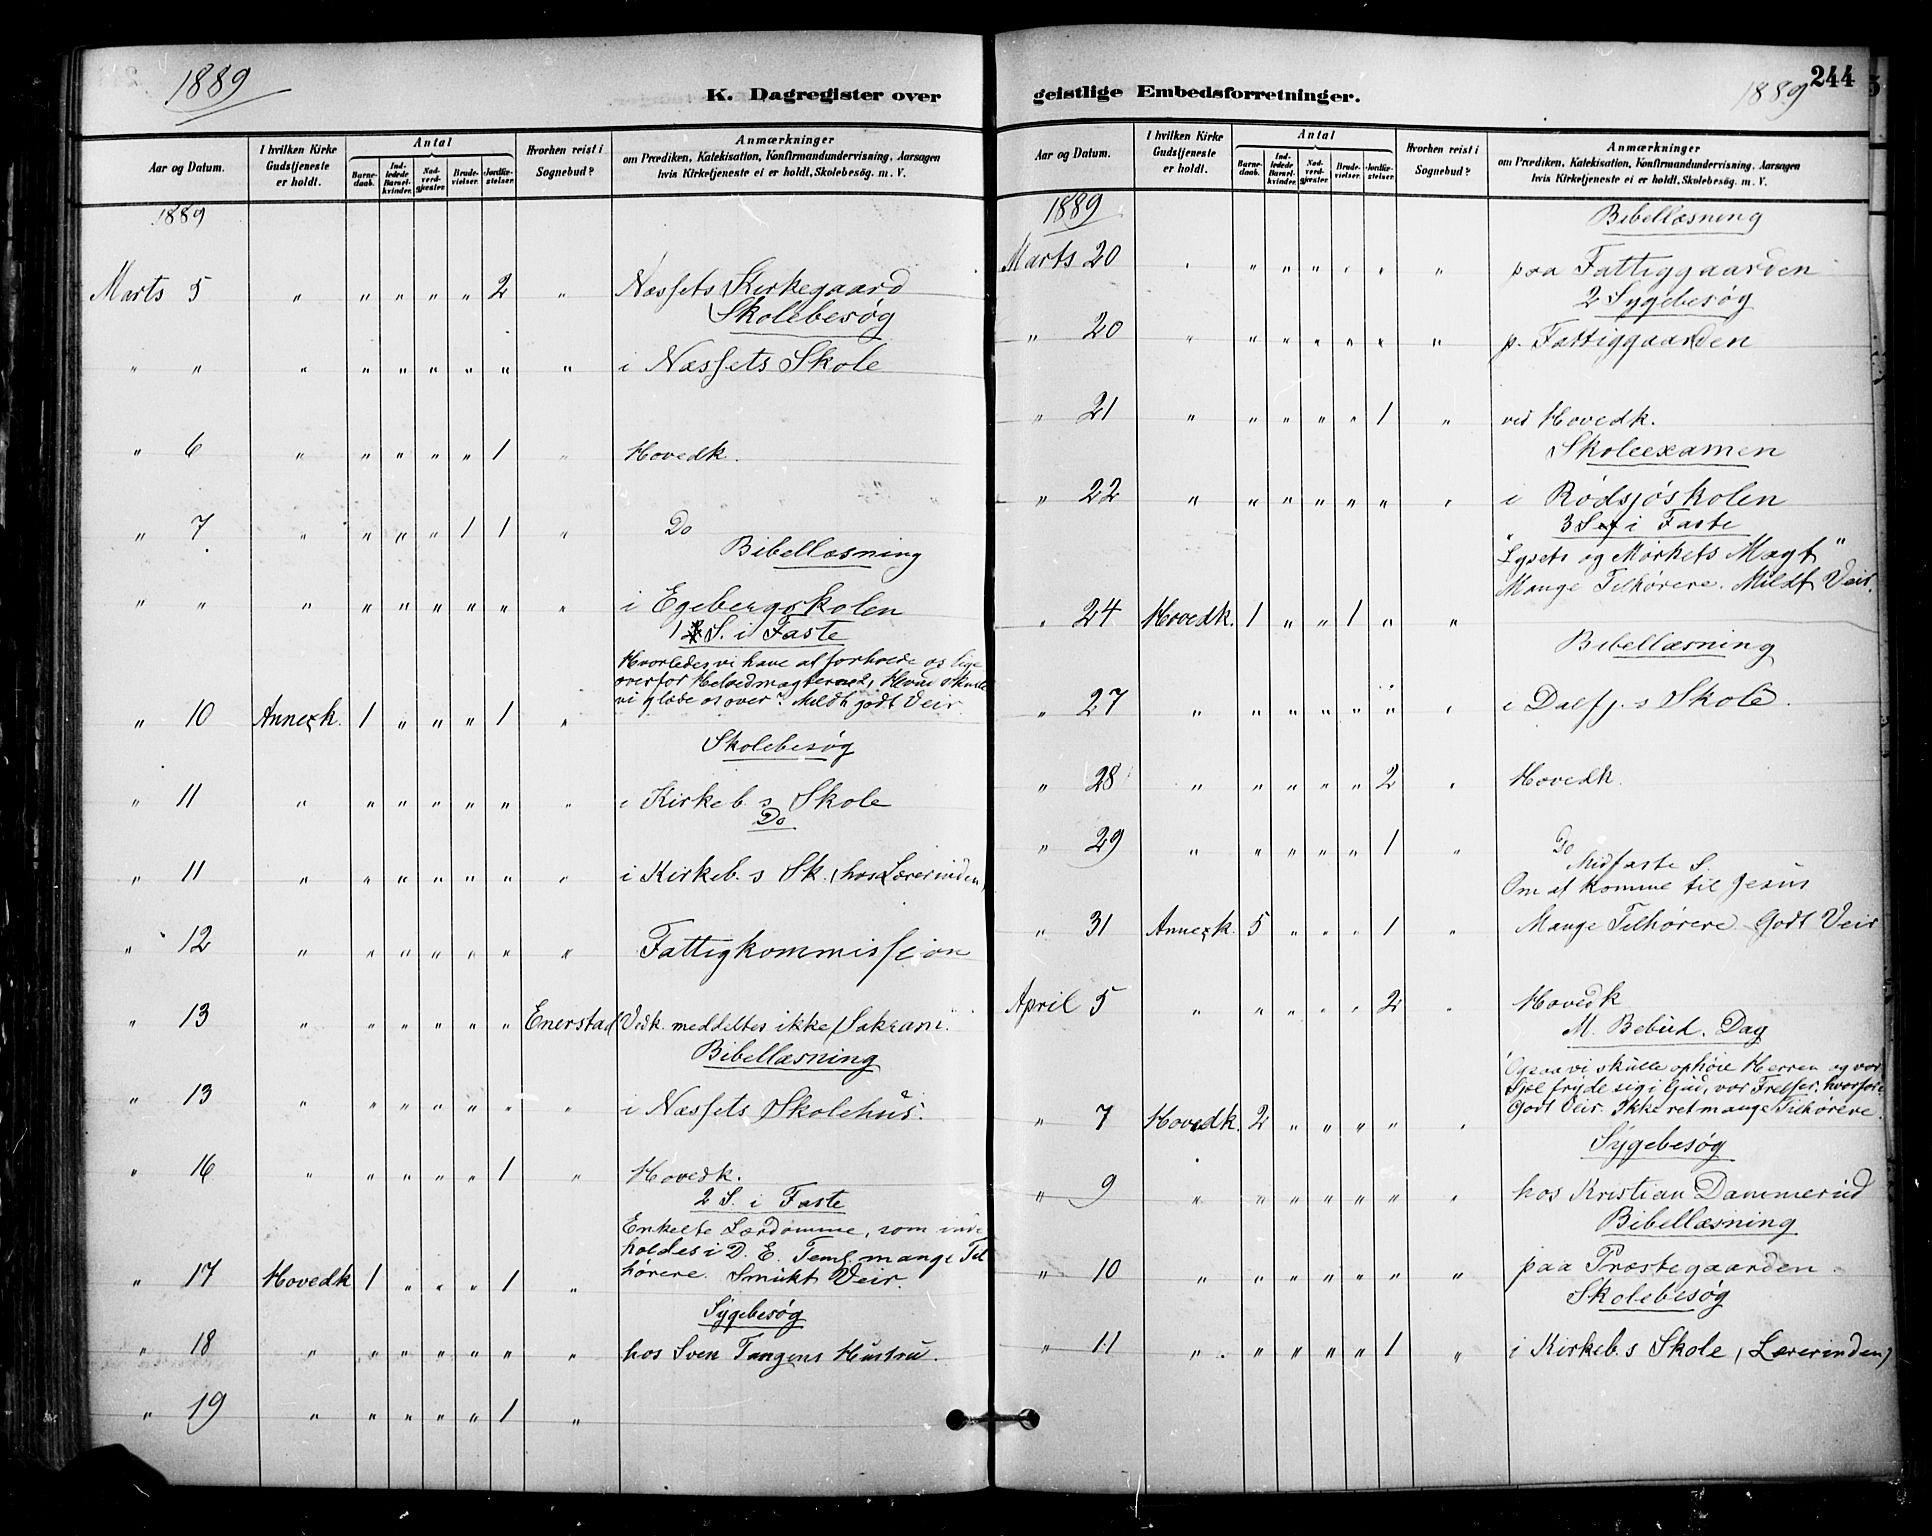 1889
K. Dagregister over
Aar og Datum.
I hvilken Kirke Gudstjeneste er holdt.
Antal
Barnedaab.
Indledede Barselkvinder.
Nadverdgjester.
Brudevielser.
Jordfæstelser.
Hvorhen reist i Sognebud?
Anmærkninger
om Prædiken, Katekisation, Konfirmandundervisning, Aarsagen
hvis Kirketjeneste ei er holdt, Skolebesøg. m. V.
1889
Marts 5 " " " " " 2 " Næssets Kirkegaard
Skolebesøg
" " " " " " " " " i Næssets Skole
" 6 " " " " " 1 " Hovedk.
" 7 " " " " 1 1 " Do
Bibellæsning
" " " " " " " " " i Egebergskolen
1 S. i Faste
Hvorledes vi have at forholde os lige
overfor Helvedmagterne 2, Hvad skulle
vi glæde os over? Mildt godt Veir
" 10 Annexk. 1 " " " 1 "
Skolebesøg
" 11 " " " " " " " i Kirkeb. s Skole
Do
" 11 " " " " " " " i Kirkeb. s Sk. (hos Lærerinden)
" 12 " " " " " " " Fattigkommission
" 13 " " " " " " Enerstad Vedk. meddeltes ikke Sakram.
Bibellæsning
" 13 " " " " " " " i Næssets Skolehus.
" 16 " " " " " 1 " Hovedk.
2 S. i Faste
Enkelte Lærdomme, som inde
holdes i D. E. mange Til
hørere. Smukt Veir
" 17 Hovedk 1 " " " 1 "
Sygebesøg
" 18 " " " " " " " hos Sven Tangens Hustru.
" 19 " " " " " 1 "
244
1889
geistlige Embedsforretninger.
Aar og Datum.
I hvilken Kirke Gudstjeneste er holdt.
Antal
Barnedaab.
Indledede Barselkvinder.
Nadverdgjester.
Brudevielser.
Jordfæstelser.
Hvorhen reist i Sognebud?
Anmærkninger
om Prædiken, Katekisation, Konfirmandundervisning, Aarsagen
hvis Kirketjeneste ei er holdt, Skolebesøg. m. V.
1889
Bibellæsning
Marts 20 " " " " " " " paa Fattiggaarden
2 Sygebesøg
" 20 " " " " " " " p. Fattiggaarden
" 21 " " " " " 1 " ved Hovedk.
Skoleexamen
" 22 " " " " " " " i Rødsjøskolen
3 S. i Faste
"Lysets og Mørkets Magt"
Mange Tilhørere. Mildt Veir.
" 24 Hovedk. 1 " " 1 " "
Bibellæsning
" 27 " " " " " " " i Dalfj. s Skole.
" 28 " " " " " 2 " Hovedk.
" 29 " " " " " 1 " Do
Midfaste S.
Om at komme til Jesus
" 31 Annexk. 5 " " " 1 " Mange Tilhørere Godt Veir
April 5 " " " " " 2 " Hovedk
M. Bebud. Dag
Ogsaa vi skulle ophøie Herren og vor
Sjel fryde sig i Gud, vor Frelser, hvorfor?
Godt Veir. Ikke ret mange Tilhørere.
" 7 Hovedk. 2 " " " " "
Sygebesøg
" 9 " " " " " " " hos Kristian Dammerud
Bibellæsning
" 10 " " " " " " " paa Præstegaarden.
Skolebesøg
" 11 " " " " " 1 " i Kirkeb. s Skole, (Lærerinden)